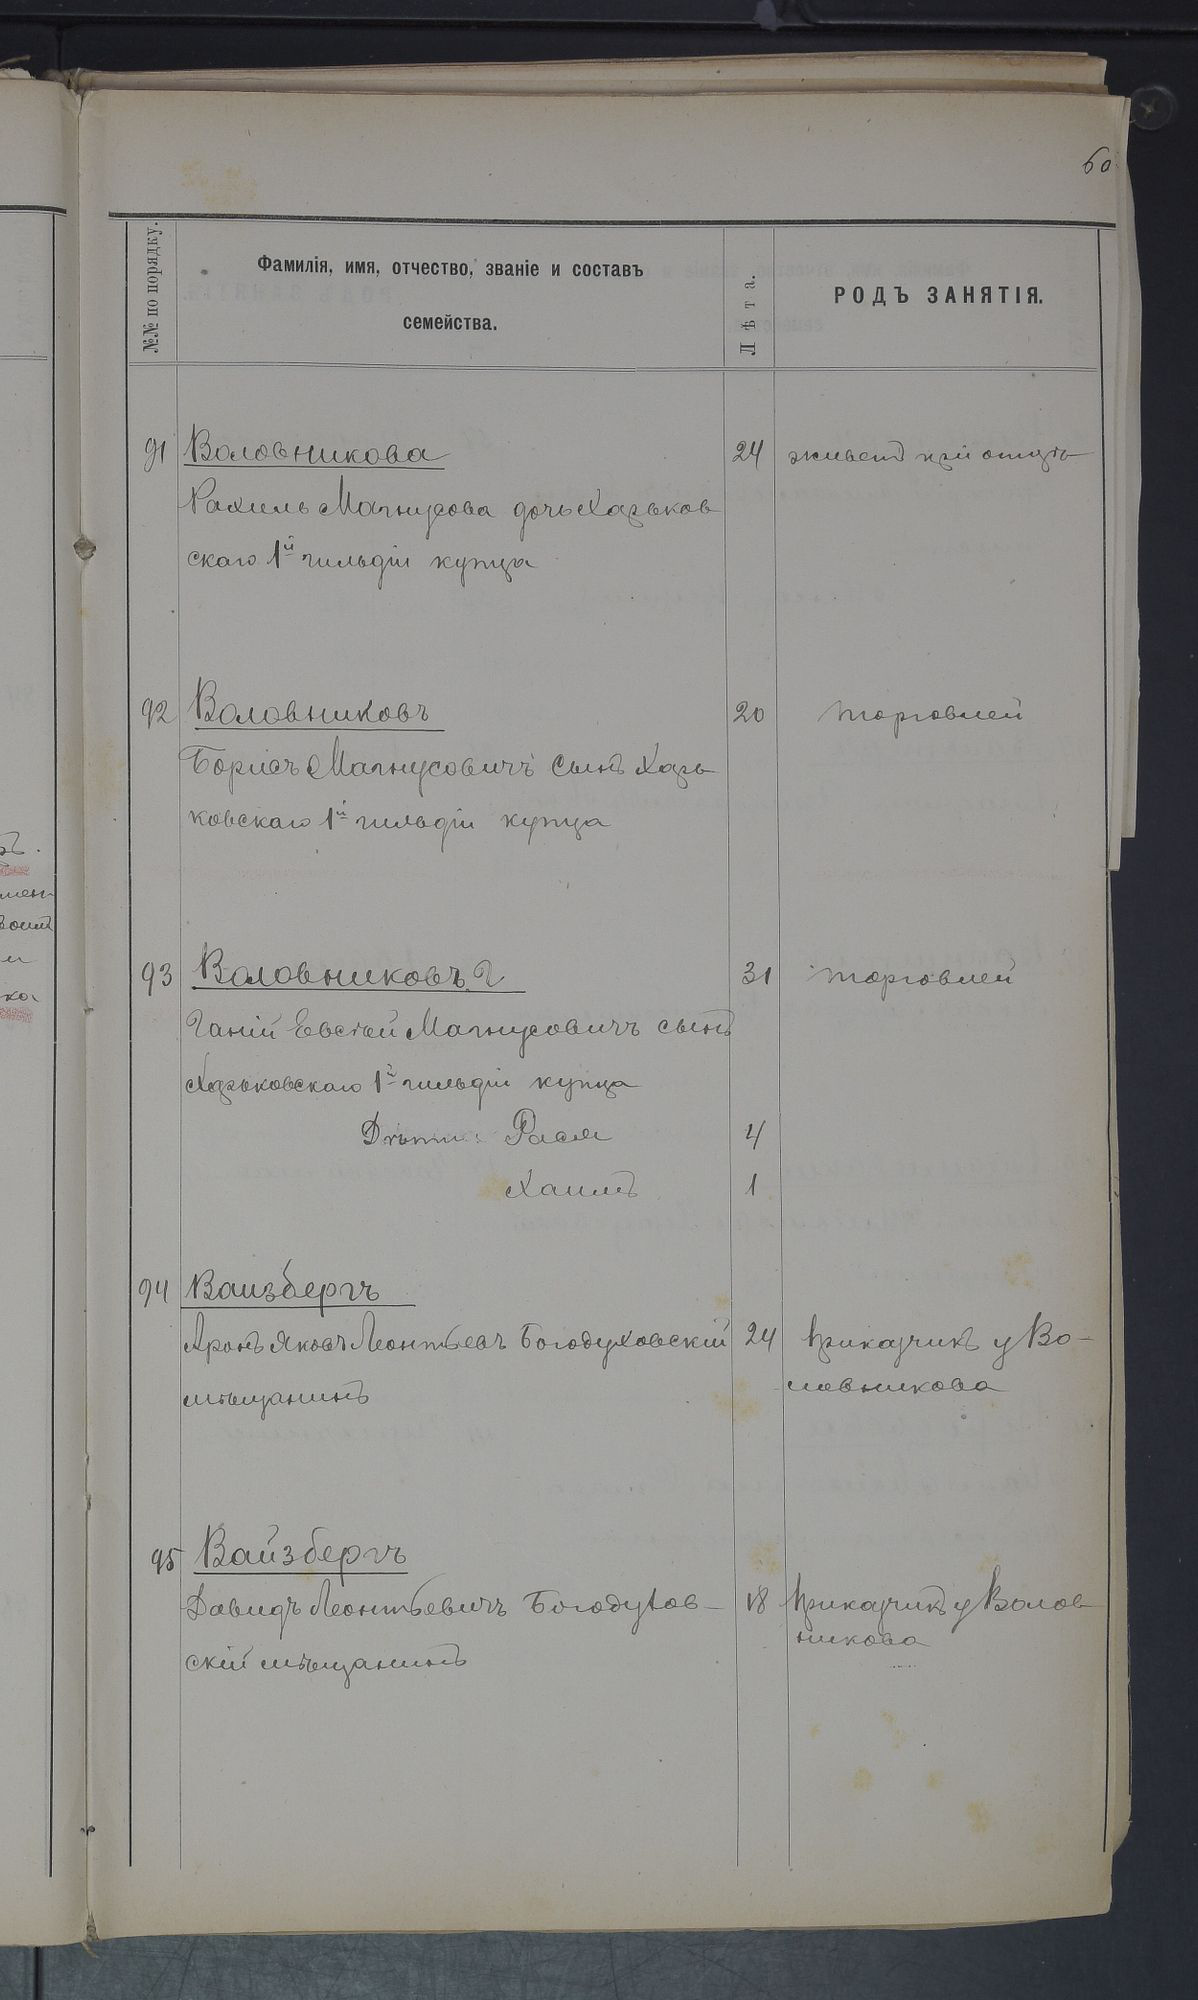 60
№№ по порядку.
Фамилія, имя, отчество, званіе и составъ
семейства.
Лѣта.
РОДЪ ЗАНЯТІЯ.
91 Воловникова 24 живетъ при отцѣ
Рахиль Магнусова дочь Харьков
скаго 1й гильдіи купца
92 Воловниковъ 20 торговлей
Борисъ Магнусовичъ сынъ Харь
ковскаго 1й гильдіи купца
93 Воловниковъ 31 торговлей
Евсѣй Магнусовичъ сынъ
Харьковскаго 1й гильдіи купца
Дѣти: Рася 4
Хаимъ 1
94 Ваизбергъ
Аронъ Яковъ Леонтьевъ Богодуховскій 24 приказчикъ у Во-
мѣщанинъ ловникова
95 Вайзбергъ
Давидъ Леонтьевичъ Богодухов- 18 приказчикъ у Волов
никова
скій мѣщанинъ